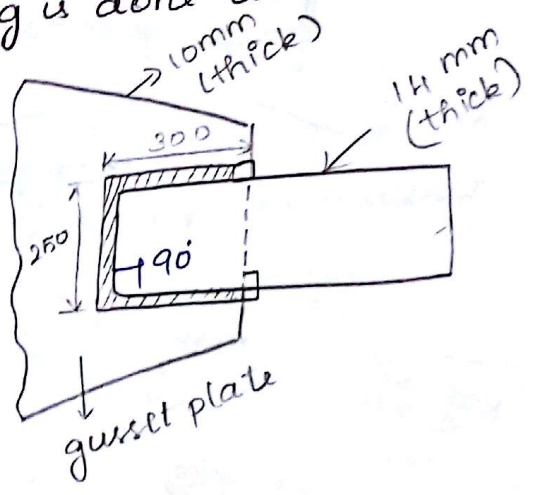 g is done
10mm
(thick)
14 mm
(thick)
300
250
90°
gusset plate